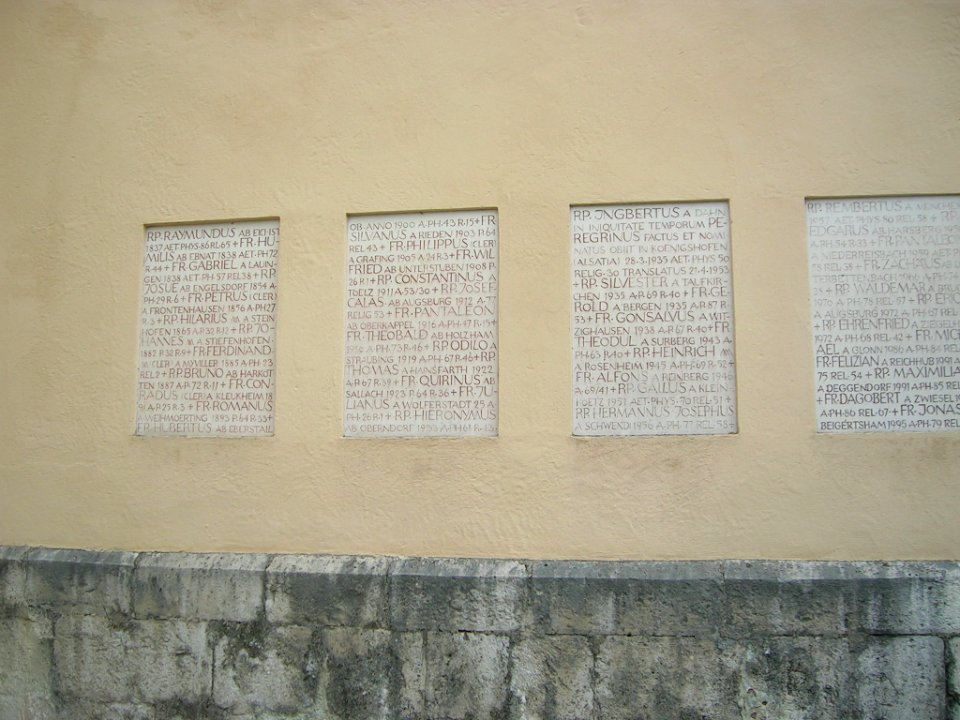 RP. RAYMUNDUS AB EICHST
1837 AET·PHYS·86 REL·65 + FR·HU-
MILIS AB EBNAT 1838 AET·PH·72
R·44 + FR·GABRIEL A LAUIN-
GEN 1838 AET·PH·57 REL·38 + RP.
JOSUE AB ENGELSDORF 1854 A·
PH·29 R·6 + FR·PETRUS (CLER)
A FRONTENHAUSEN 1856 A·PH·27
R·3 + RP. HILARIUS M. A STEIN
HOFEN 1865 A·R + RP. JO-
HANNES M. A STIEFENHOFEN
1882 R·32 R·9 + FR·FERDINAND
M. CLER. A MYILLER 1885 A·PH·23
REL·2 + RP. BRUNO AB HARKOT
TEN 1887 A·R·72 R·11 + FR·CON-
RADUS (CLER) A KLEUKHEIM 18
91 A·R·25 R·3 + FR·ROMANUS
A WEHMOERTING 1893 P·64 R·33 +
FR·HUBERTUS AB EBERSTALL
OB·ANNO 1900 A·PH·43 R·15 + FR
SILVANUS A RIEDEN 1903 P·64
REL·43 + FR·PHILIPPUS (CLER)
A GRAFING 1905 A·24 R·3 + FR·WIL
FRIED AB UNTERSTUBEN 1908 P·
26 R·1 + RP. CONSTANTINUS A
TOELZ 1911 A·53/30 + RP. JOSEF
CALAS· AB AUGSBURG 1912 A·77
RELIG·53 + FR·PANTALEON
AB OBERKAPPEL 1916 A·PH·47 R·15 +
FR·THEOBALD AB HOLZHAM
A·PH·73 R·46 + RP. ODILO A
STRAUBING 1919 A·PH·67 R·46 + RP.
THOMAS A HAINSFARTH 1922
A·R·67 R·39 + FR·QUIRINUS AB
SALLACH 1923 P·64 R·36 + FR·JU-
LIANUS A WOLFERSTADT 25 A·
PH·28 R·1 + RP. HIERONYMUS
AB OBERNDORF A·PH·61 R·43
RP. INGBERTUS A DAHN
IN INIQUITATE TEMPORUM PE-
REGRINUS FACTUS ET NOMI
NATUS OBIIT IN KOENIGSHOFEN
(ALSATIA) 28·3·1935 AET·PHYS·50
RELIG·30 TRANSLATUS 21·4·1953
+ RP. SILVESTER A TAUFKIR-
CHEN 1935 A·PH·69 R·40 + FR·GE-
ROLD A BERGEN 1935 A·R·87 R·
53 + FR·GONSALVUS A WIT-
ZIGHAUSEN 1938 A·R·67 R·40 + FR·
THEODUL A SURBERG 1943 A·
PH·63 R·40 + RP. HEINRICH M.
A ROSENHEIM 1945 A·PH·69 R·52 +
FR·ALFONS A REINBERG 1946
A·69/41 + RP. GALLUS A KLEIN-
DIETZ 1951 AET·PHYS·70 REL·51 +
RP. HERMANNUS JOSEPHUS
A SCHWENDI 1956 A·PH·77 REL·58 +
RP. REMBERTUS A MÜNCHEN
1957 AET·PHYS·80 REL·58 + RP.
EDGARIUS AB HARSBERG
A·PH·54 R·33 + FR·PAN
A NIEDERREISBACH
REL·38 + FR·ZACHARIAS
+ RP. WALDEMAR A BRUC
1970 A·PH·78 REL·57 + RP. ERIC
A AUGSBURG 1972 A·PH·67 REL
+ RP. EHRENFRIED A ZIEGELH
1972 A·PH·68 REL·42 + FR·MICH
AEL A GLONN 1986 A·PH·84 REL
FR·FELIZIAN A REICHHUB 1991 A·
75 REL·54 + RP. MAXIMILIA
A DEGGENDORF 1991 A·PH·85 REL
+ FR·DAGOBERT A ZWIESEL 19
A·PH·86 REL·67 + FR·JONAS
BEIGERTSHAM 1995 A·PH·79 REL